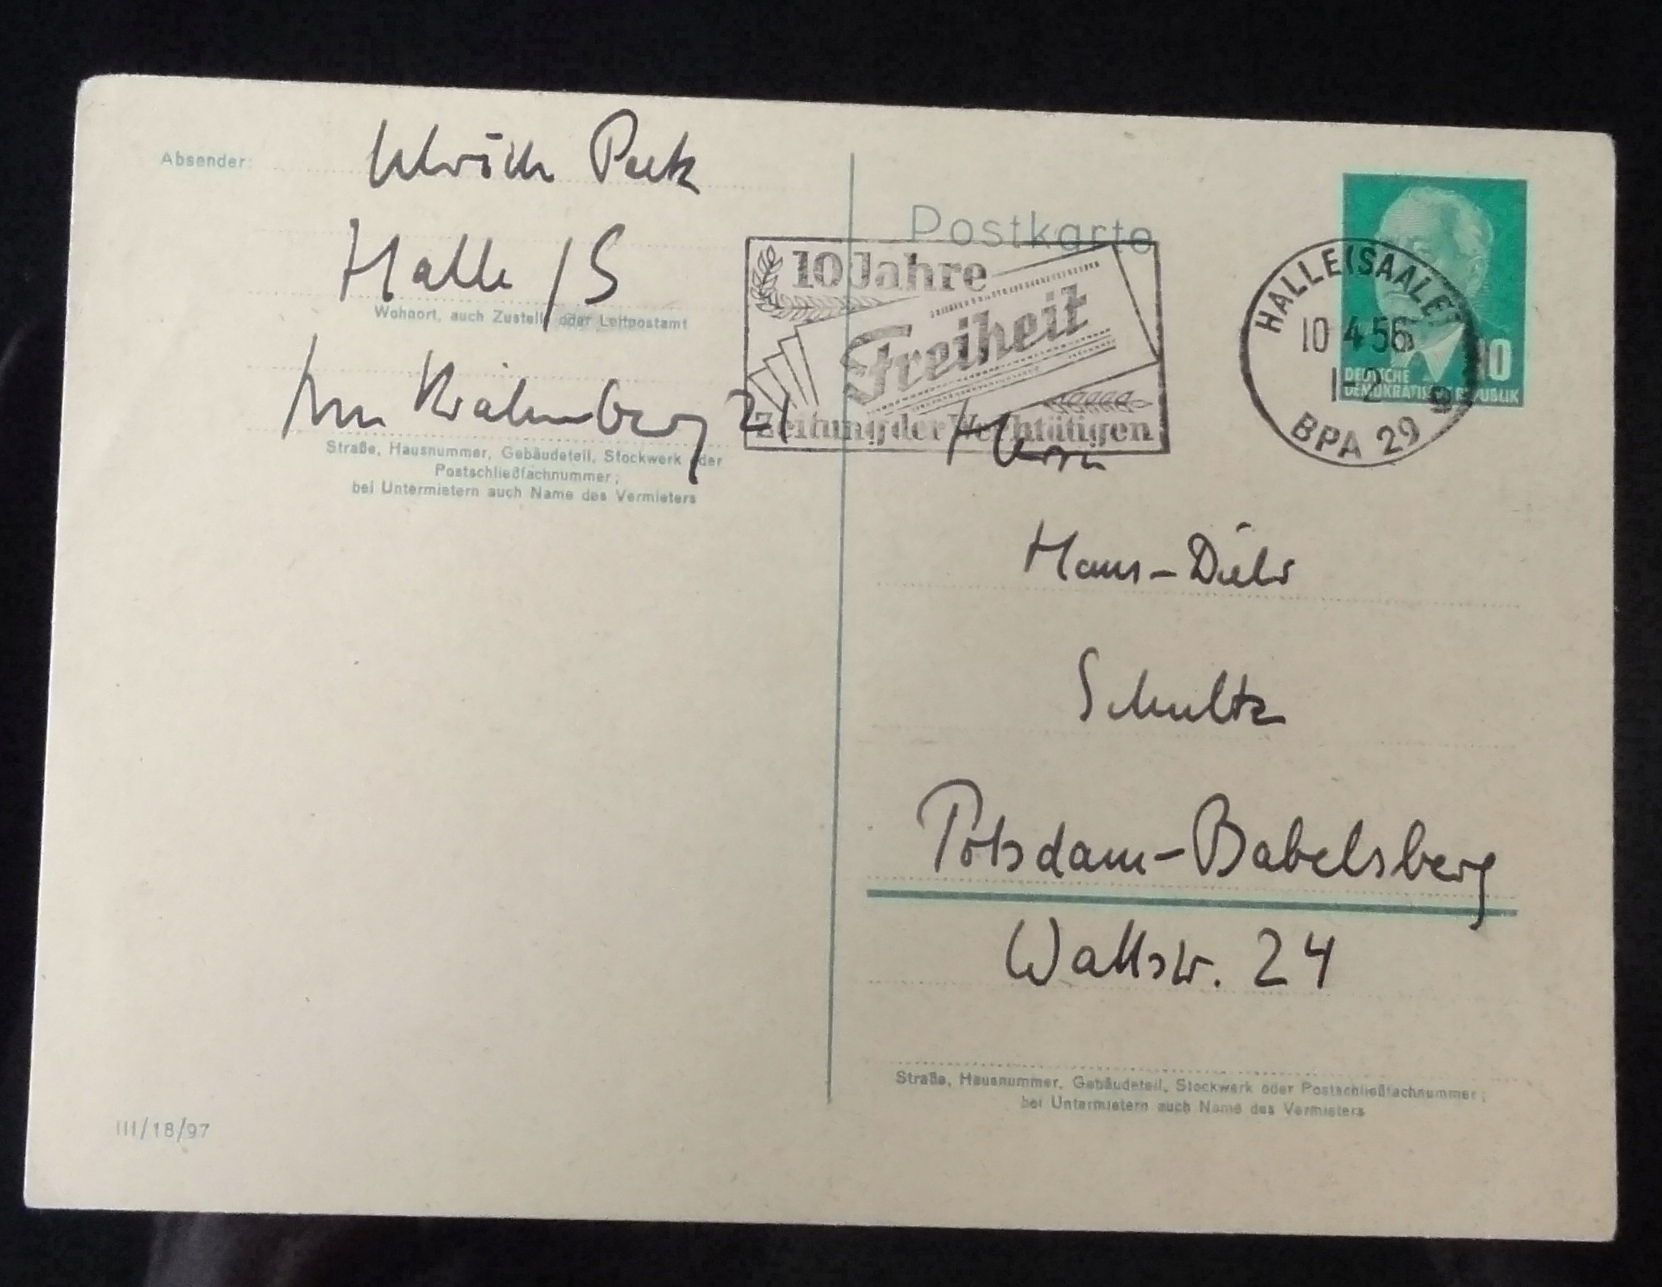 Absender: Ulrich Peck
Halle / S
Wohnort, auch Zustell- oder Leitpostamt
Am Krähenberg 21
Straße, Hausnummer, Gebäudeteil, Stockwerk oder
Postschließfachnummer;
bei Untermietern auch Name des Vermieters
III/18/97
Postkarte
10 Jahre
Freiheit
Zeitung der Werktätigen
HALLE (SAALE)
10 4 56
1-2
BPA 29
DEUTSCHE
DEMOKRATISCHE REPUBLIK
10
Herrn
Hans-Dieter
Schultz
Potsdam-Babelsberg
Wallstr. 24
Straße, Hausnummer, Gebäudeteil, Stockwerk oder Postschließfachnummer;
bei Untermietern auch Name des Vermieters